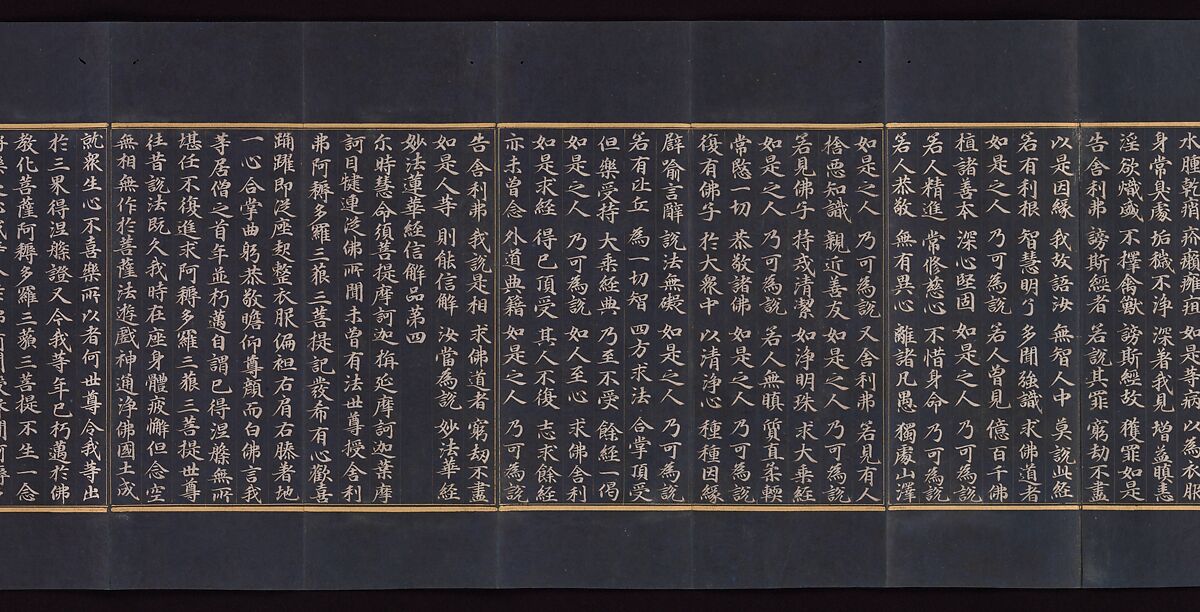 水腫乾痟 疥癩癰疽 如是等病 以為衣服
身常臭處 垢穢不淨 深著我見 增益瞋恚
淫欲熾盛 不擇禽獸 謗斯經故 獲罪如是
告舍利弗 謗斯經者 若說其罪 窮劫不盡
以是因緣 我故語汝 無智人中 莫說此經
若有利根 智慧明了 多聞強識 求佛道者
如是之人 乃可為說 若人曾見 億百千佛
植諸善本 深心堅固 如是之人 乃可為說
若人精進 常修慈心 不惜身命 乃可為說
若人恭敬 無有異心 離諸凡愚 獨處山澤
如是之人 乃可為說 又舍利弗 若見有人
捨惡知識 親近善友 如是之人 乃可為說
若見佛子 持戒清潔 如淨明珠 求大乘經
如是之人 乃可為說 若人無瞋 質直柔輭
常愍一切 恭敬諸佛 如是之人 乃可為說
復有佛子 於大衆中 以清淨心 種種因緣
譬喻言辭 說法無礙 如是之人 乃可為說
若有比丘 為一切智 四方求法 合掌頂受
但樂受持 大乘經典 乃至不受 餘經一偈
如是之人 乃可為說 如人至心 求佛舍利
如是求經 得已頂受 其人不復 志求餘經
亦未曾念 外道典籍 如是之人 乃可為說
告舍利弗 我說是相 求佛道者 窮劫不盡
如是人等 則能信解 汝當為說 妙法華經
妙法蓮華經信解品第四
尒時慧命須菩提摩訶迦栴延摩訶迦葉摩
訶目揵連從佛所聞未曾有法世尊授舍利
弗阿耨多羅三藐三菩提記發希有心歡喜
踊躍即從座起整衣服偏袒右肩右膝著地
一心合掌曲躬恭敬瞻仰尊顏而白佛言我
等居僧之首年並朽邁自謂已得涅槃無所
堪任不復進求阿耨多羅三藐三菩提世尊
往昔說法既久我時在座身體疲懈但念空
無相無作於菩薩法遊戲神通淨佛國土成
就衆生心不喜樂所以者何世尊令我等出
於三界得涅槃證又今我等年已朽邁於佛
教化菩薩阿耨多羅三藐三菩提不生一念